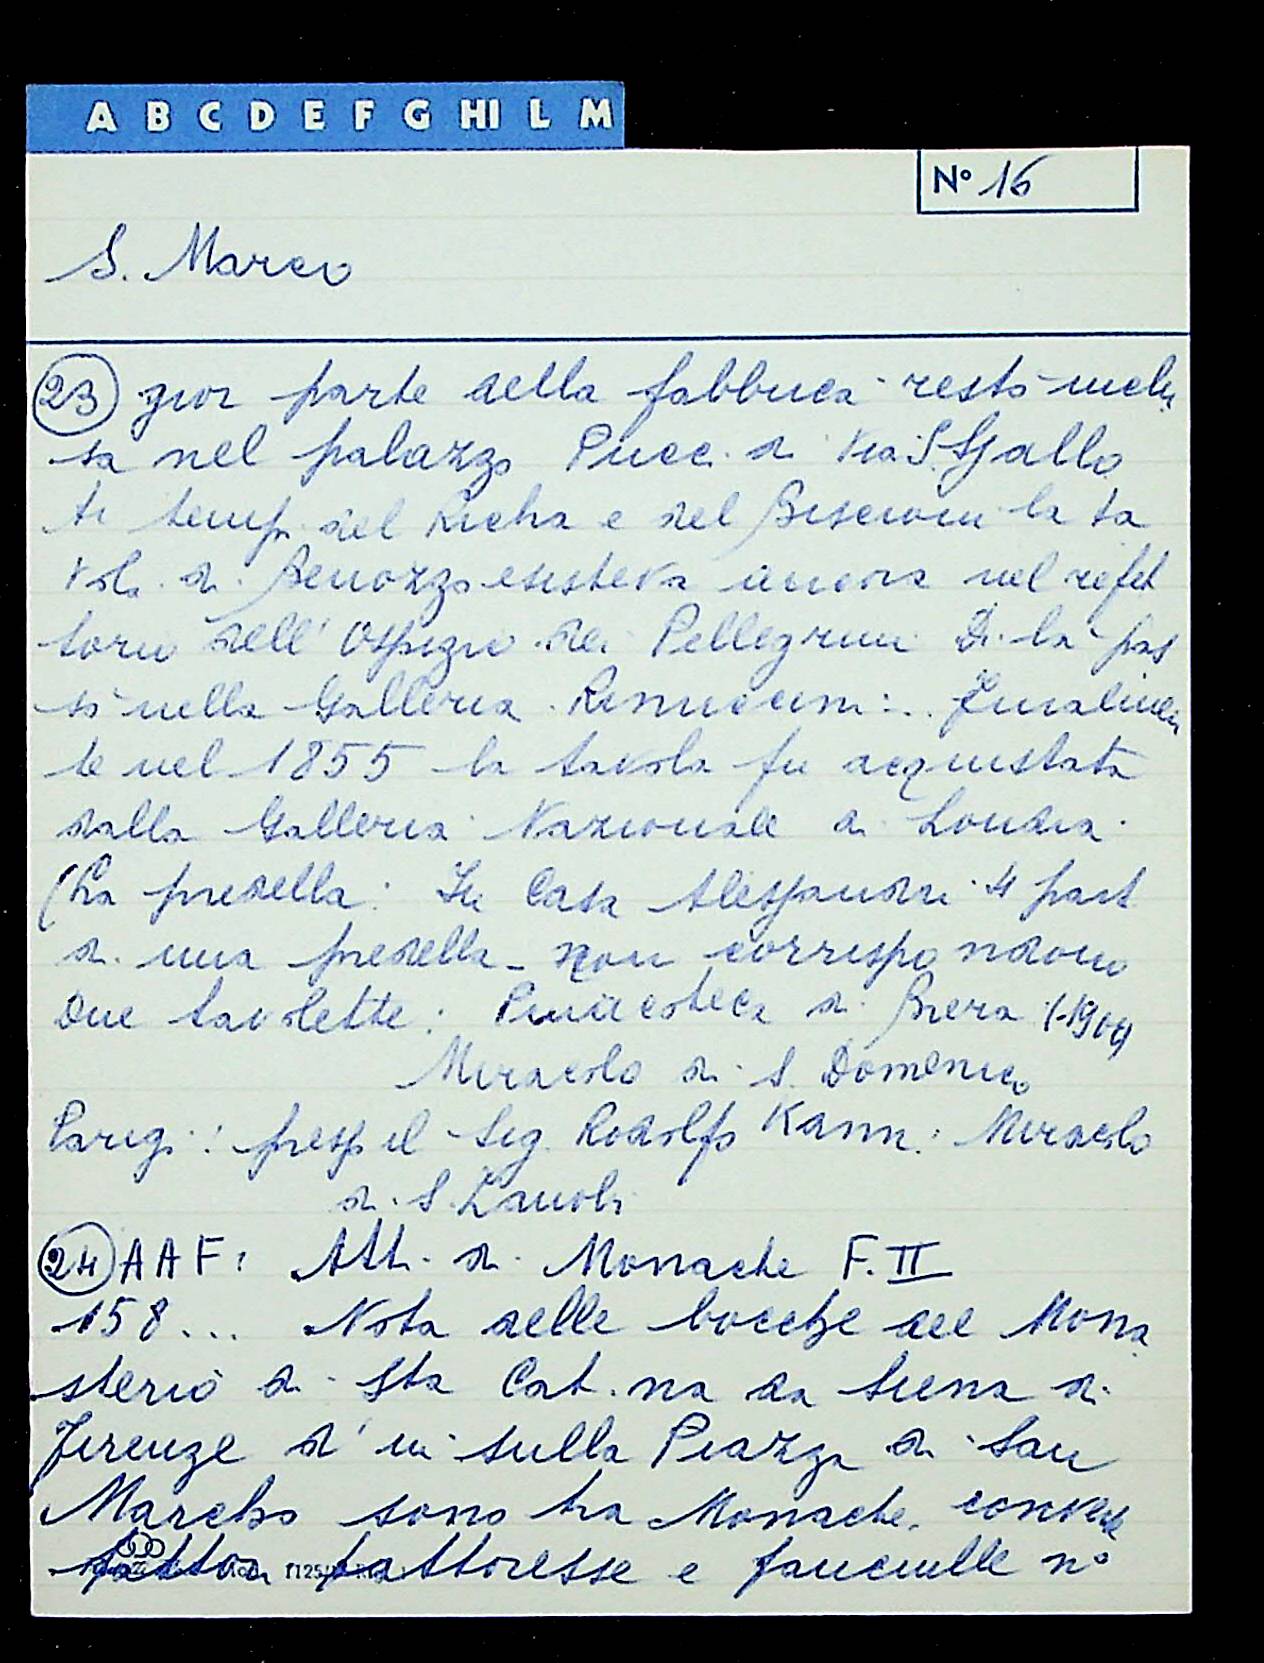 A B C D E F G HI L M
N° 16
S. Marco
23 gior parte della fabbrica restò inclu
sa nel palazzo Pucci di Via S. Gallo
Ai tempi del Richa e del Biscioni la ta
vola di Benozzo esisteva ancora nel refet
torio dell' Ospizio dei Pellegrini Di là pas
sò nella Galleria Renuccini: Finalmen
te nel 1855 la tavola fu acquistata
dalla Galleria Nazionale di Londra.
(La predella: In Casa Alessandri 4 part
di una predella - non corrispondono
Due tavolette: Pinacoteca di Brera (1904)
Miracolo di S. Domenico
Parigi: presso il Sig. Rodolfo Kann: Miracolo
di S. Zanobi
24 A A F: Atti di Monache F. II
158... Nota delle bocche del Mona
sterio di Sta Cat.na da Siena di
Firenze d' in sulla Piazza di San
Marcho sono tra Monache, converse
fattori fattoresse e fanciulle n°